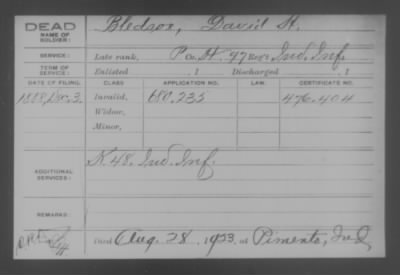 DEAD
NAME OF SOLDIER: Bledsoe, David H.
SERVICE: Late rank, P Co. H. 97 Reg't Ind. Inf.
TERM OF SERVICE: Enlisted , 1 Discharged , 1
DATE OF FILING. CLASS APPLICATION NO. LAW. CERTIFICATE NO.
1888, Dec. 3. Invalid, 680.235 476.404
Widow,
Minor,
ADDITIONAL SERVICES: K 48. Ind. Inf.
REMARKS:
Died Aug. 28, 1923, at Pimento, Ind